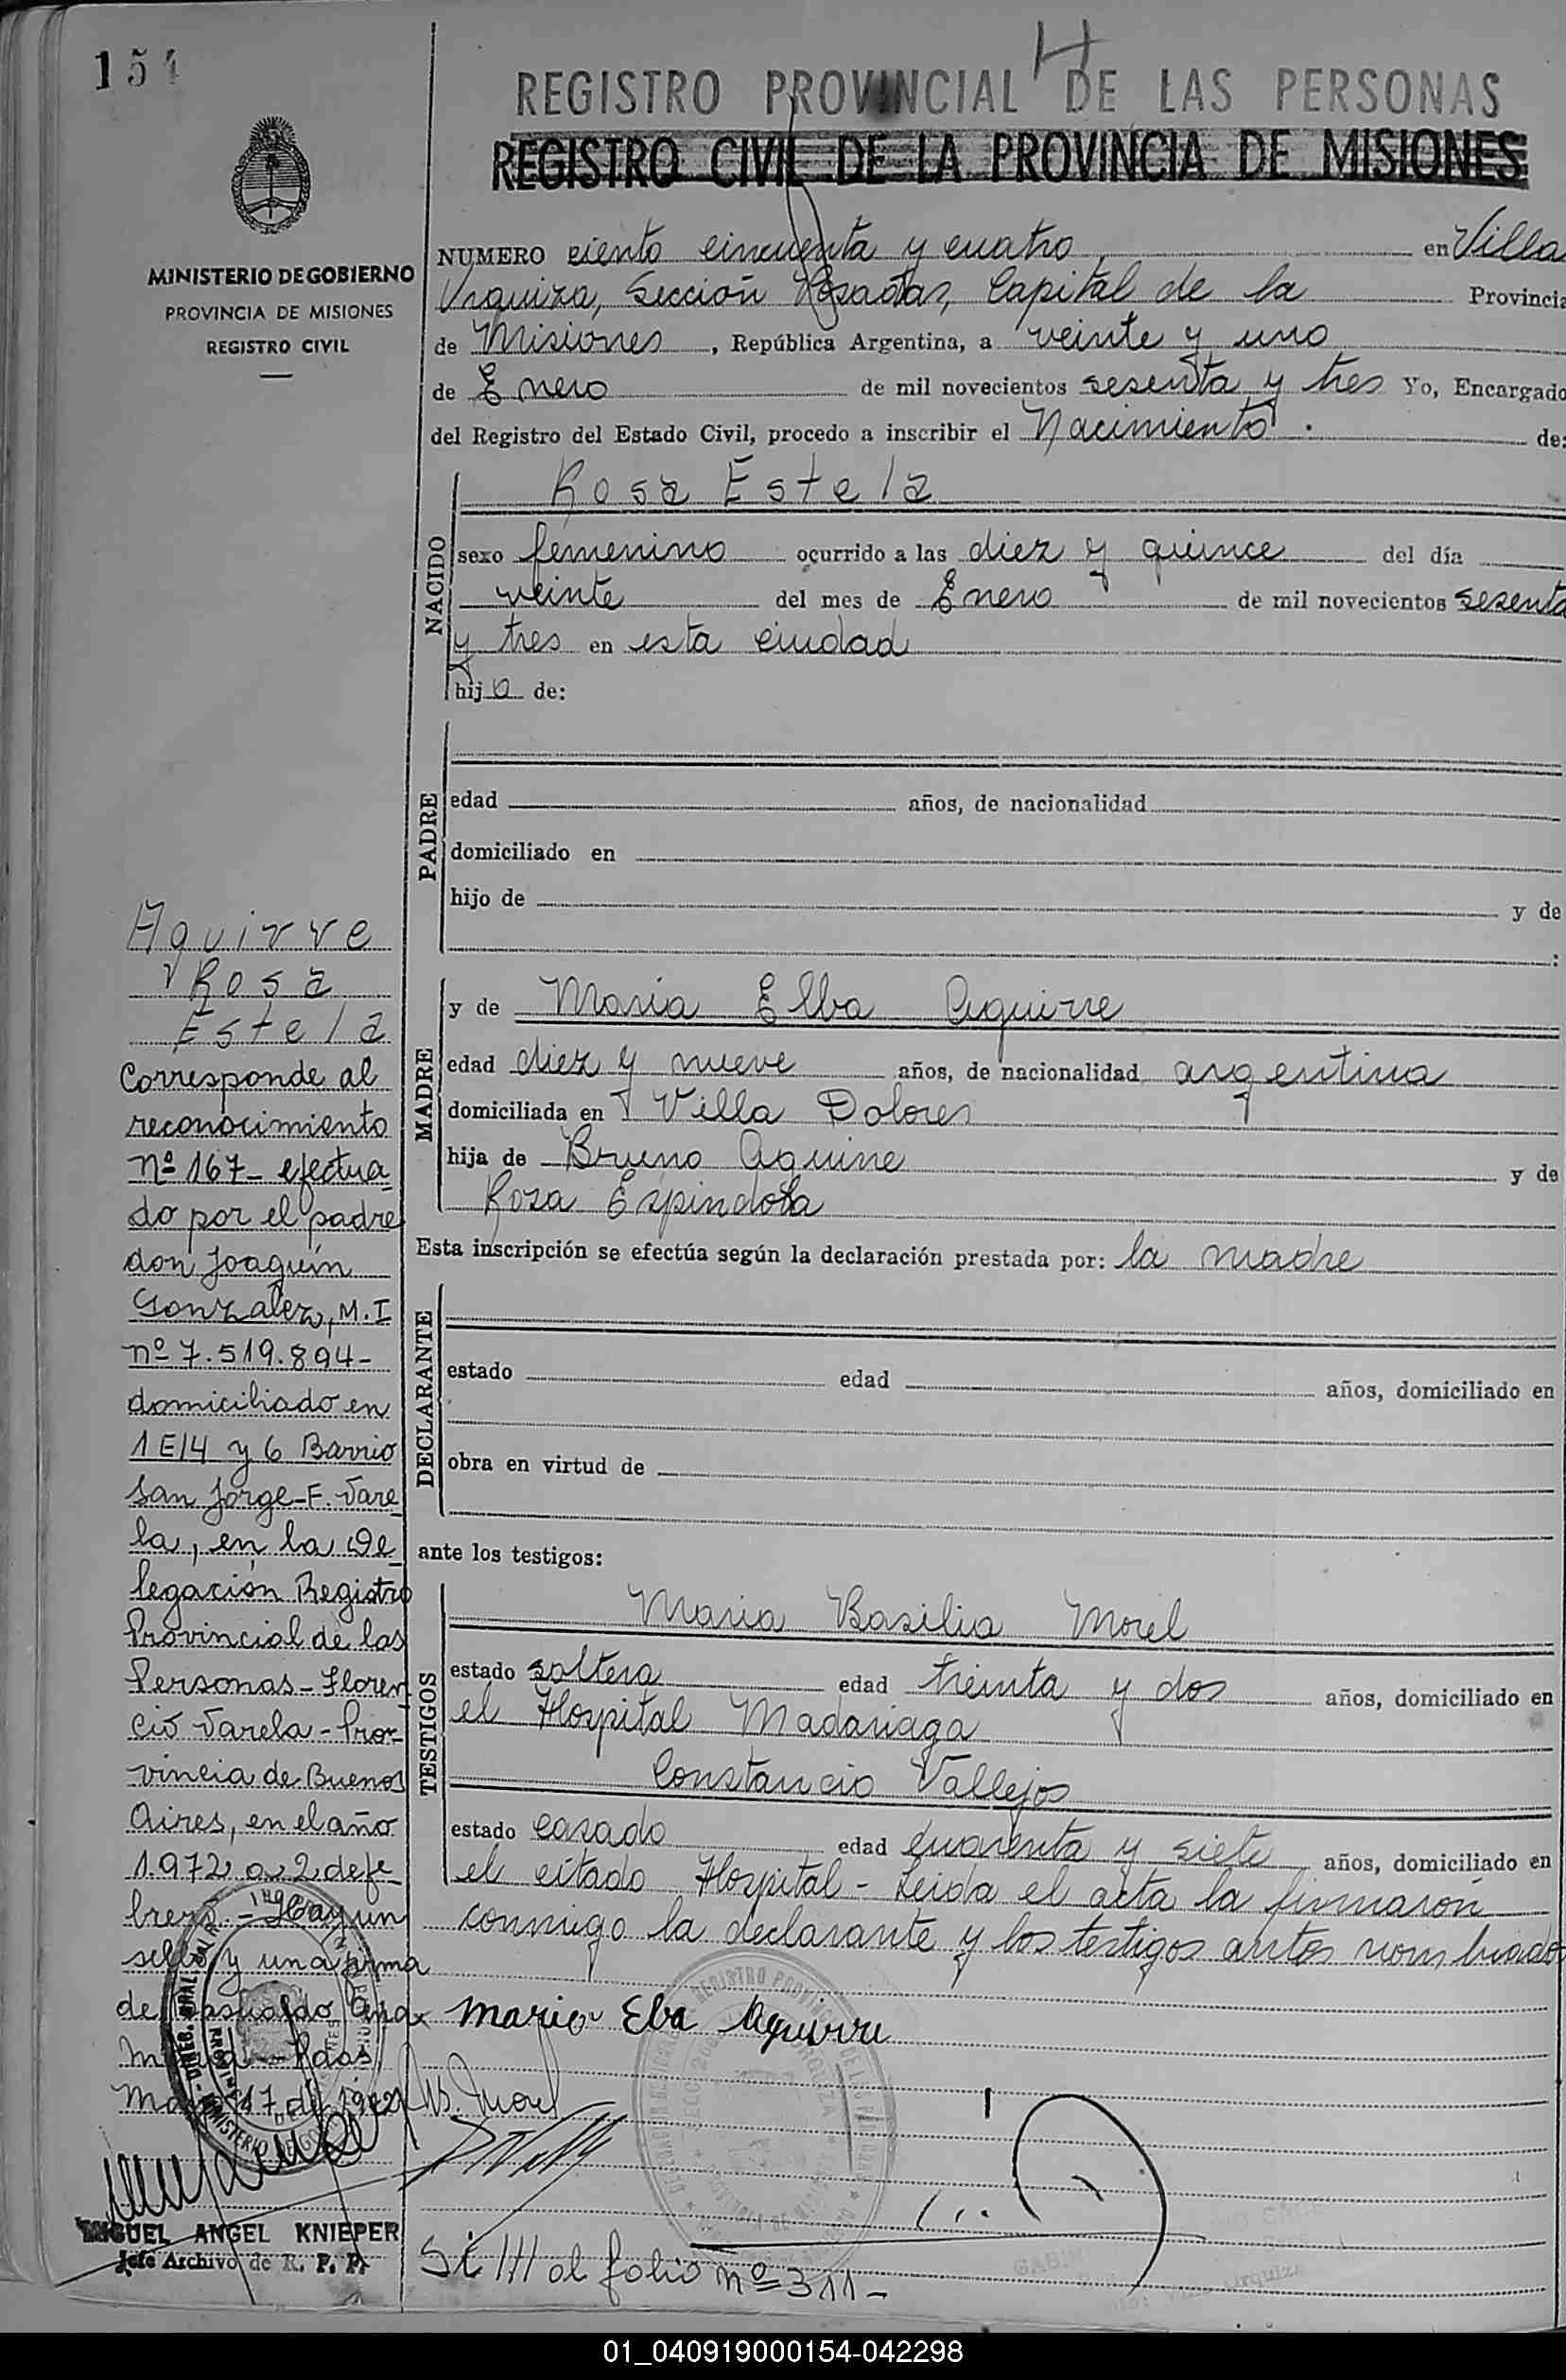 154
H
REGISTRO PROVINCIAL DE LAS PERSONAS
REGISTRO CIVIL DE LA PROVINCIA DE MISIONES
MINISTERIO DE GOBIERNO
PROVINCIA DE MISIONES
REGISTRO CIVIL
NUMERO ciento cincuenta y cuatro en Villa
Urquiza, Sección Posadas, Capital de la Provincia
de Misiones, República Argentina, a veinte y uno
de Enero de mil novecientos sesenta y tres Yo, Encargado
del Registro del Estado Civil, procedo a inscribir el Nacimiento de:
NACIDO
Rosa Estela
sexo femenino ocurrido a las diez y quince del día
veinte del mes de Enero de mil novecientos sesenta
y tres en esta ciudad
hija de:
PADRE
edad años, de nacionalidad
domiciliado en
hijo de y de
:
MADRE
y de Maria Elba Aguirre
edad diez y nueve años, de nacionalidad argentina
domiciliada en Villa Dolores
hija de Bruno Aguirre y de
Rosa Espindola
Esta inscripción se efectúa según la declaración prestada por: la madre
DECLARANTE
estado edad años, domiciliado en
obra en virtud de
ante los testigos:
TESTIGOS
Maria Basilia Morel
estado soltera edad treinta y dos años, domiciliado en
el Hospital Madariaga
Constancio Vallejos
estado casado edad cuarenta y siete años, domiciliado en
el citado Hospital - Leida el acta la firmaron
conmigo la declarante y los testigos antes nombrados
Maria Elba Aguirre
B. Morel
Si /// al folio nº 311-
Aguirre
Rosa
Estela
Corresponde al
reconocimiento
Nº 167- efectua
do por el padre
don Joaquín
Gonzalez, M.I
nº 7.519.894-
domiciliado en
1 E/4 y 6 Barrio
San Jorge-F. Vare
la, en la De
legación Registro
Provincial de las
Personas - Floren
cio Varela - Pro-
vincia de Buenos
Aires, en el año
1.972 a 2 de fe
brero - Hay un
sello y una firma
de
17 de 1972
MIGUEL ANGEL KNIEPER
Jefe Archivo de R. P. P.
01_040919000154-042298